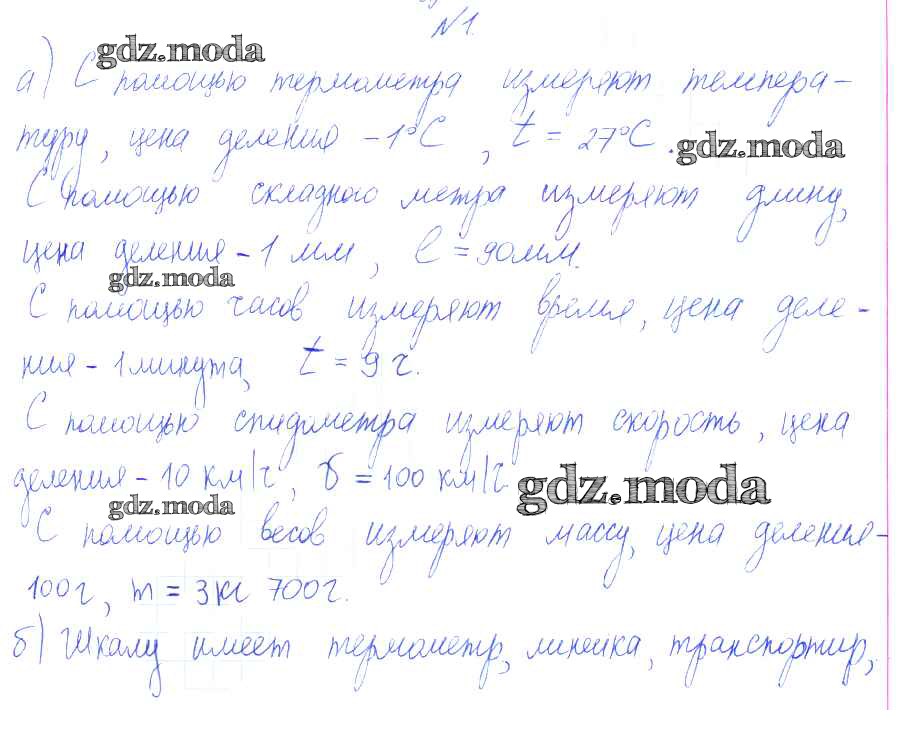 №1.
gdz.moda
а) С помощью термометра измеряют темпера-
туру, цена деления -1°С, t = 27°С.
gdz.moda
С помощью складного метра измеряют длину,
цена деления - 1 мм, l = 90мм.
gdz.moda
С помощью часов измеряют время, цена деле-
ния - 1 минута, t = 9 ч.
С помощью спидометра измеряют скорость, цена
деления - 10 км/ч, υ = 100 км/ч
gdz.moda
gdz.moda
С помощью весов измеряют массу, цена деления -
100г, m = 3кг 700г.
б) Шкалу имеет термометр, линейка, транспортир,